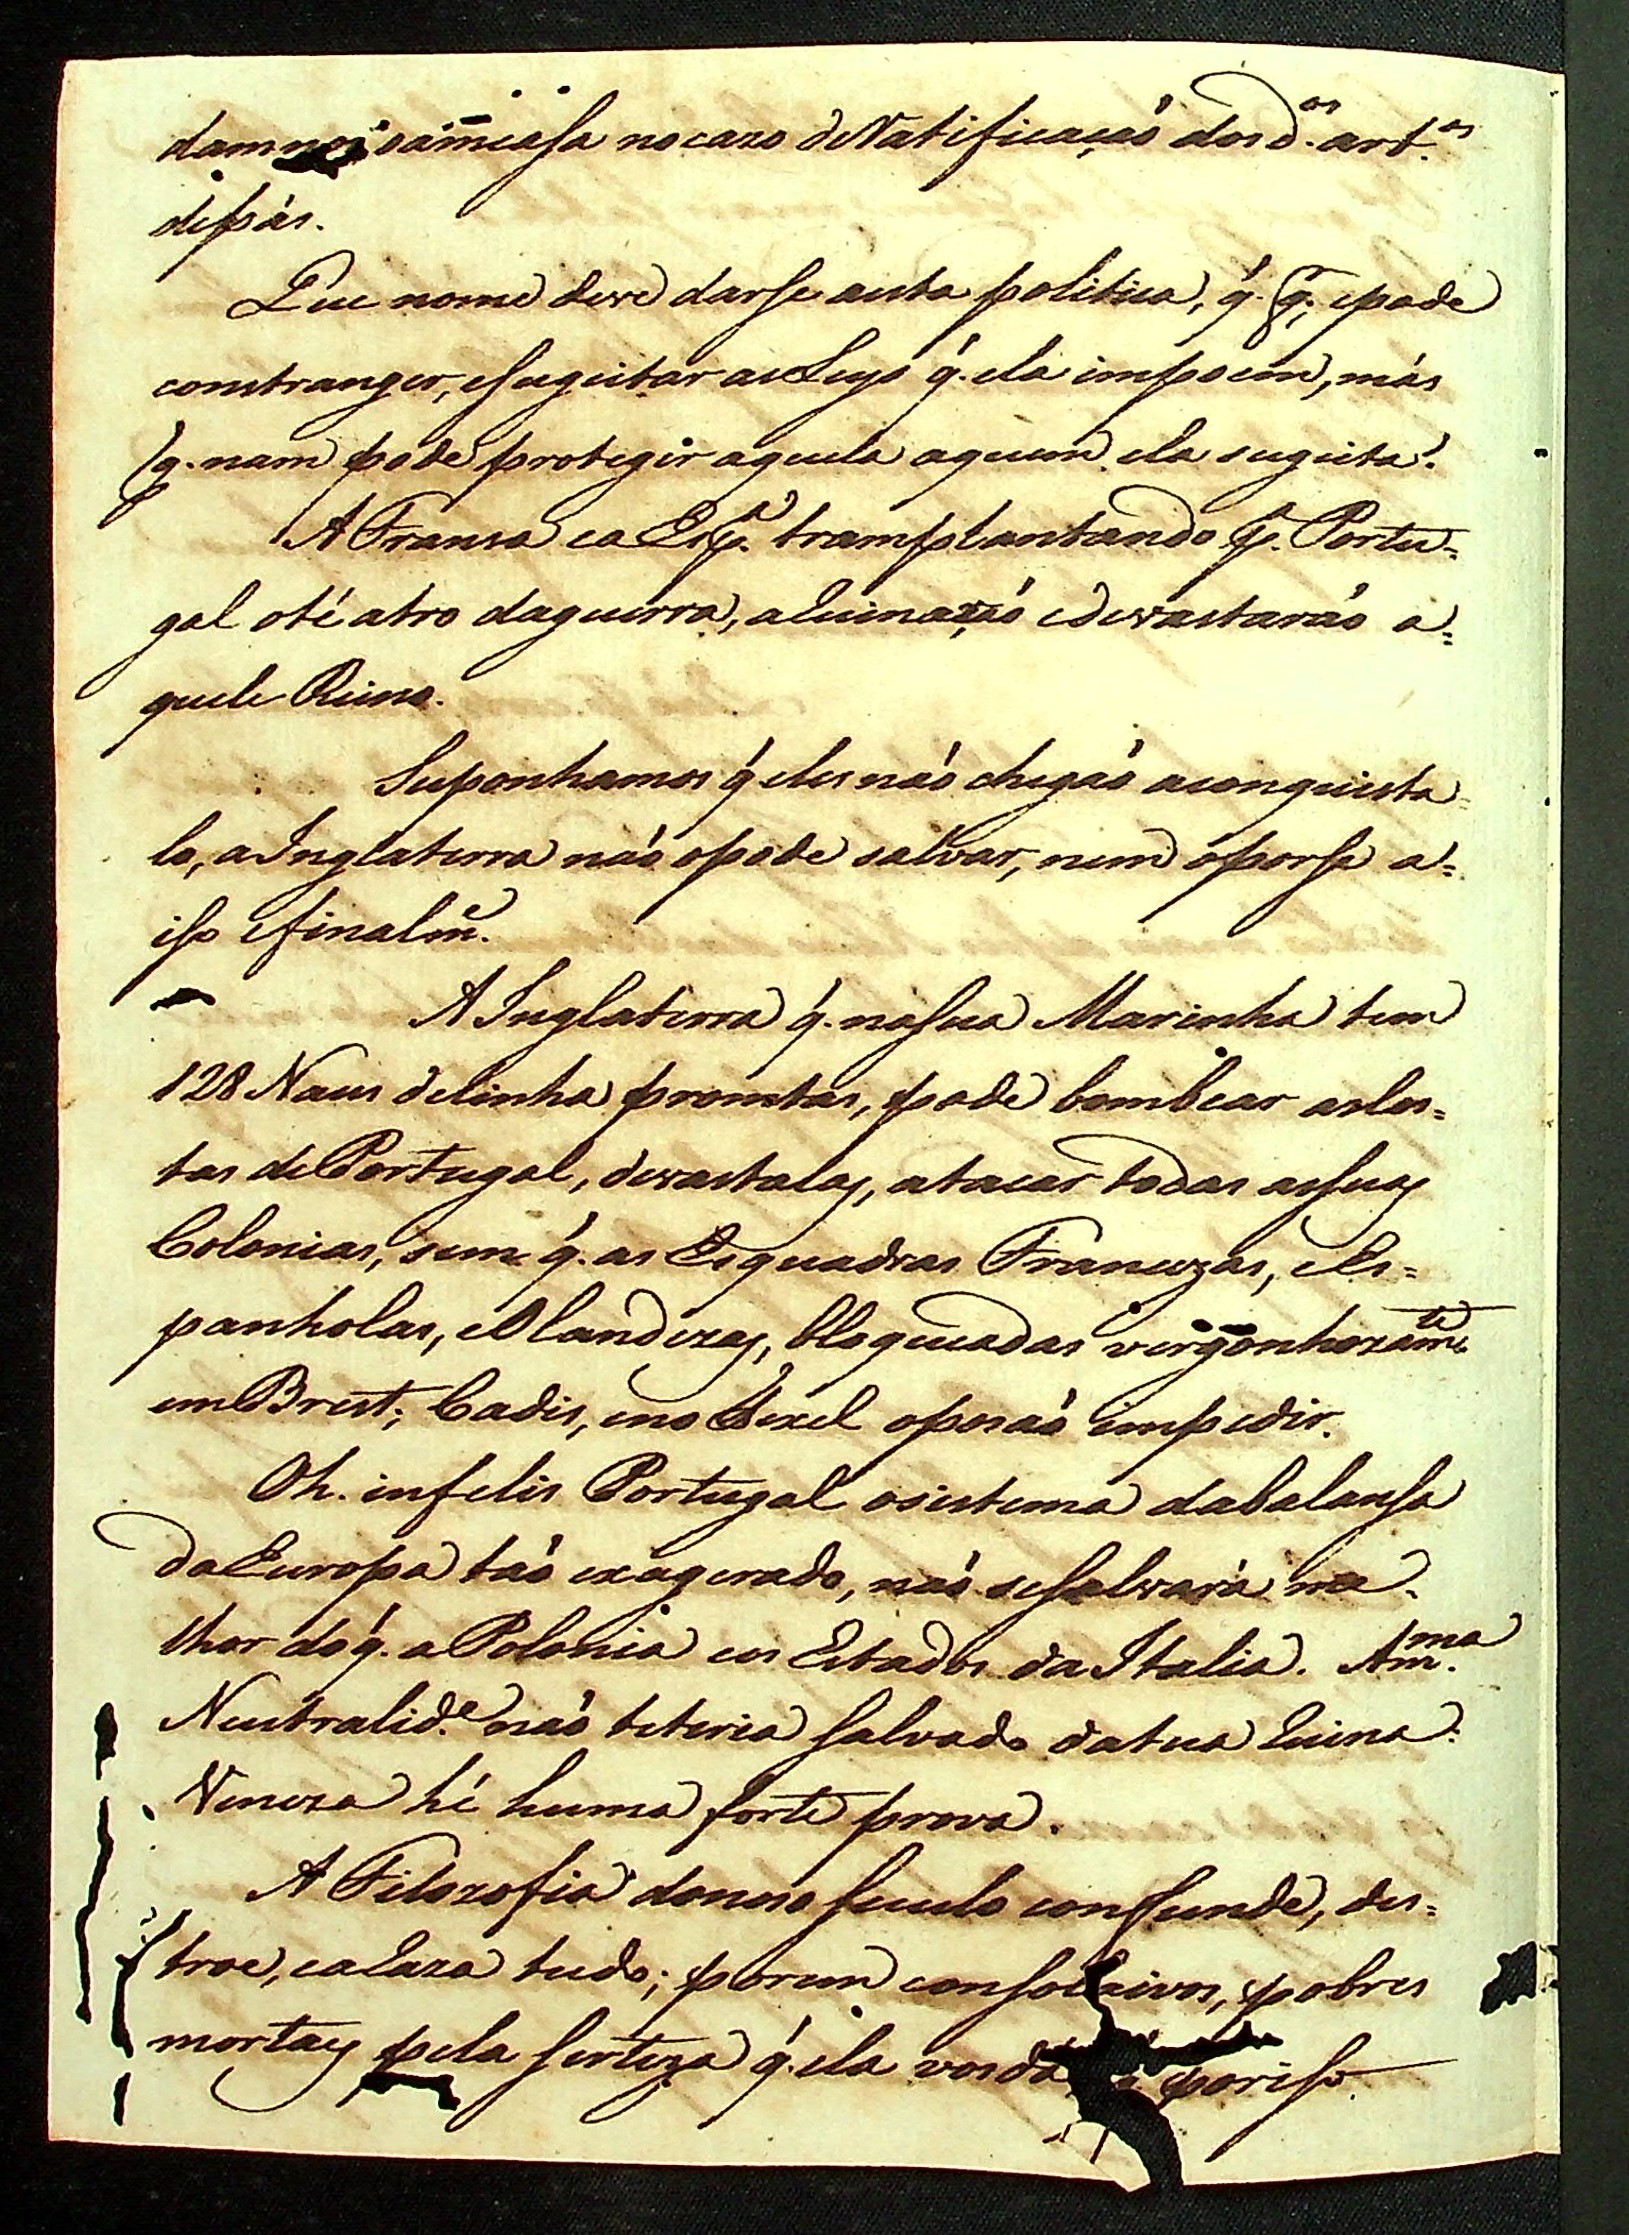 damnos oámeasa no cazo de Ratificaçaó dos d.os art.os
de pás.
Que nome deve darse a esta politica, q̃. q̃; e pode
constranger, e sugeitar as Leys q̃. ela impoem, más
q̃. nam pode protegir aquela aquem ela sugeita?
A Fransa e a Esp.a tramplantando p.a Portu=
gal o té atro da guerra, a luinaraó e devastaráo a=
quele Reino.
Suponhamos q̃ eles náo chegáo a conquista-
lo, a Inglaterra náo o pode salvar, nem oporse a=
iso e finalm̃.
A Inglaterra q̃. na sua Marinha tem
128 Naus de linha promtas, pode bombear as Cos=
tas de Portugal, devastalas, atacar todas as suas
Colonias, sem q̃. as Esquadras Francezas, e Es=
panholas, e Olandezas, bloqueadas vergonhozamte
em Brest, Cadis, e no Texel o posáo impedir.
Oh. infelis Portugal o sistema da balansa
da Europa táo exagerado, náo se salvará me-
lhor do q̃. a Polonia e os Estados da Italia. A m.ma
Neutralid.e náo te teria salvado da tua luina.
Veneza hé huma forte prova.
A Filozofia do noso seculo confunde, des=
troe, e a laza tudo; porem consolaivos, pobres
mortays pela serteza q̃. ela vos dá poriso